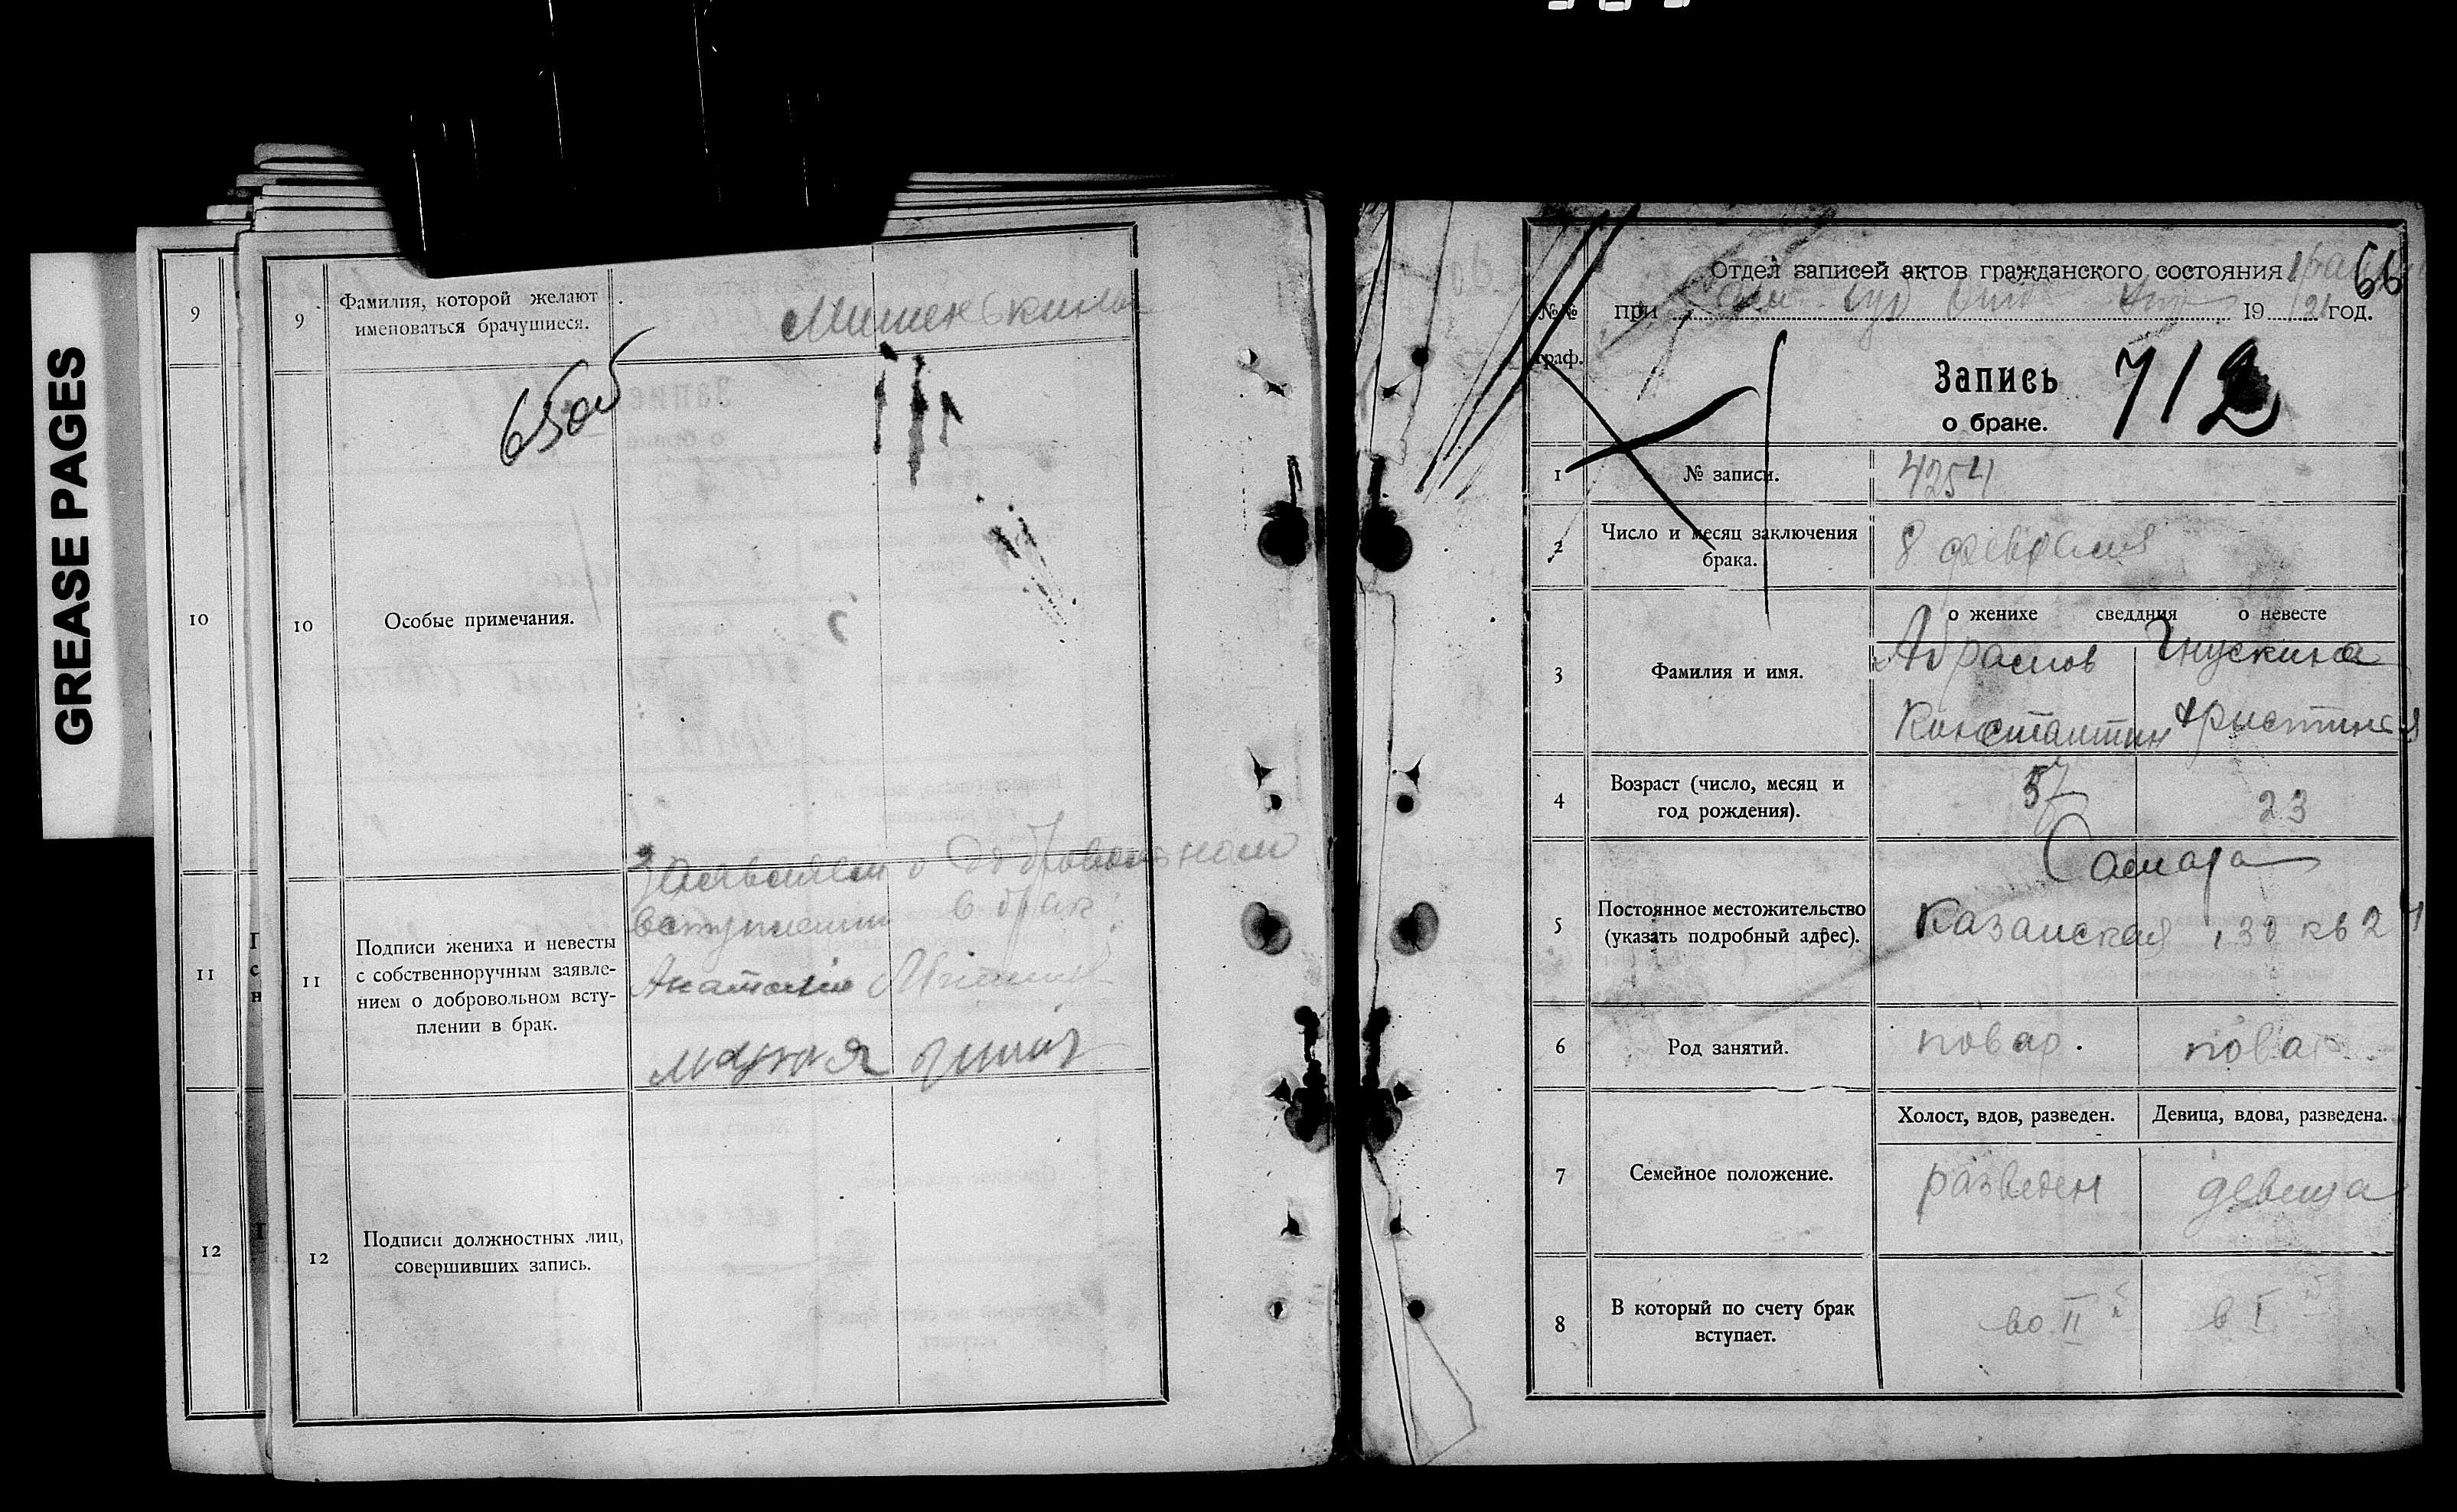 GREASE PAGES
9
10
11
12
9
Фамилия, которой желают
именоваться брачущиеся.
65об
10
Особые примечания.
11
Подписи жениха и невесты
с собственноручным заявле-
нием о добровольном всту-
плении в брак.
о добровольном
вступлении в брак
12
Подписи должностных лиц,
совершивших запись.
66
Отдел записей актов гражданского состояния
№№
граф.
при 19 21 год.
Запись 712
о браке.
1
№ записи.
4254
2
Число и месяц заключения
брака.
8 февраля
о женихе сведдния о невесте
3
Фамилия и имя.
Абрамов Гнускина
Константин
4
Возраст (число, месяц и
год рождения).
23
5
Постоянное местожительство
(указать подробный адрес).
Самара
Казанская 30 кв
6
Род занятий.
повар. повар
Холост, вдов, разведен. Девица, вдова, разведена.
7
Семейное положение.
разведен девица
8
В который по счету брак
вступает.
во II й в I й